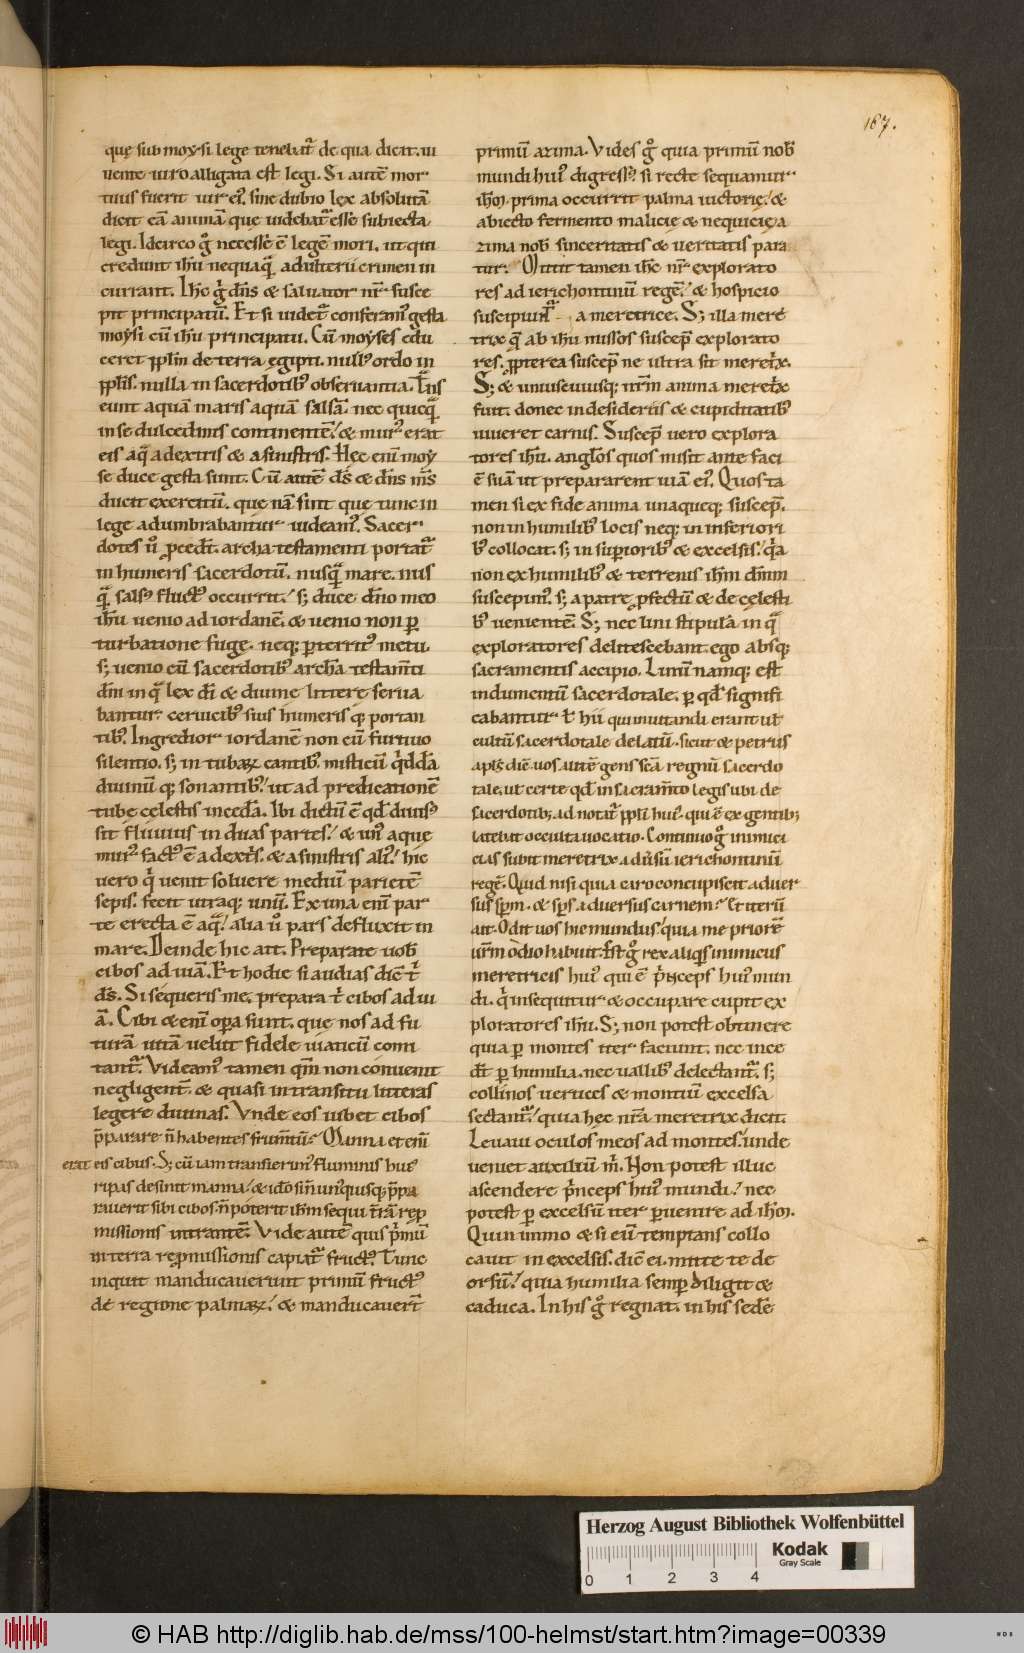 167.
quę sub moysi lege tenebat᷑ de qua dicat. ui
uente uiro alligata est legi. Si autē mor
tuus fuerit uir ei᷒. sine dubio lex absolutā
dicit eā animā que uidebat᷑ esse subiecta
legi. Idcirco gͦ necesse ē legē mori. ut qui
credunt ihū nequaqͣ adulterii crimen in
currant. Ihc gͥ dn̄s & saluator nr̄ susce
pit principatū. Et si uidet᷑ conferam᷒ gesta
moysi cū ihū principatu. Cū moyses edu
ceret pplm̄ de terra ęgipti. null᷒ ordo in
pplis. nulla in sacerdotib᷒ obseruantia. Trͣns
eunt aquā maris aquā salsā. nec quicqͣ
in se dulcedinis continentē. & mur᷒ erat
eis aqͣ a dextris & a sinistris. Hęc enī moy
se duce gesta sunt. Cū autē dn̄s & dn̄s ms̄
ducit exercitū. que nā sint que tunc in
lege adumbrabantur uideam᷒. Sacer
dotes uͦ p̄cedūt. archa testamenti portat᷑
in humeris sacerdotū. nusqͣ mare. nus
qͣ sals᷒ fluct᷒ occurrit. s; duce dn̄o meo
ihū uenio ad iordanē. & uenio non p̱
turbatione fugę. neq; p̱territ᷒ metu.
s; uenio cū sacerdotib᷒ archā testam̄ti
dn̄i in qͣ lex dī & diuine littere serua
bantur. ceruicib᷒ suis humeris q; portan
tib᷒. Ingredior iordanē non cū furtiuo
silentio. s; in tubaꝝ cantib᷒. misticū qͥddā
diuinū q; sonantib᷒. ut ad predicationē
tube celestis incedā. Ibi dictū ē qd̄ diuis᷒
sit fluuius in duas partes. & un᷒ aque
mur᷒ fact᷒ ē a dextris. & a sinistris ali᷒. hic
uero qͥ uenit soluere mediū parietē
sepis. fecit utraq; unū. Ex una enī par
te erecta ē aqͣ. alia uͦ pars defluxit in
mare. Deinde hic ait. Preparate uob᷒
cibos ad uiā. Et hodie si audias dic̄ tͥ
ds̄. Si sequeris me, prepara tͥ cibos ad ui
ā. Cibi & enī oꝑa sunt. que nos ad fu
turā uitā uelut fidele uiaticū comi
tant᷑. Videam᷒ tamen qm̄ non conuenit
negligent̄. & quasi in transitu litteras
legere diuinas. Vnde eos iubet cibos
p̄parare n̄ habentes frum̄tū. Manna et enī
erat eis cibus. S; cū iam transierint fluminis hui᷒
ripas desinit manna. & ido sin̄ un᷒quisq; p̄pa
rauerit sibi cibos. n̄ poterit ihm̄ sequi t̄rā rep̱
missionis intrantē. Vide autē quis pͥmū
in terra rep̱missionis capiat᷑ fruct᷒. Tunc
inquit manducauerunt primū fruct᷒
de regione palmaꝝ. & manducauert̄
primū azima. Vides gͦ quia primū nob᷒
mundi hui᷒ digress᷒. si recte sequamur
ihm̄. prima occurrit palma uictorię. &
abiecto fermento malicię & nequicię a
zima nob᷒ sinceritatis & ueritatis para
tur. Mittit tamen ihc nr̄ explorato
res ad ierichontinū regē. & hospicio
suscipiunt᷑ a meretrice. S; illa mere
trix quę ab ihū missos suscep̄ explorato
res. p̱pterea suscep̄ ne ultra sit meretͥx.
S; & uniuscuiusq; nrm̄ anima meretͥx
fuit. donec in desideriis & cupiditatib᷒
uiueret carnis. Suscep̄ uero explora
tores ihū. anglos quos misit ante faci
ē suā ut prepararent uiā ei᷒. Quos ta
men si ex fide anima unaqueq; suscep̄.
non in humilib᷒ locis neq; in inferiori
b᷒ collocat. s; in suꝑiorib᷒ & excelsis. qͥa
non ex humilib᷒ & terrenis ihm̄ dn̄m
suscepim᷒. s; a patre p̱fectū & de cęlesti
b᷒ uenientē. S; nec lini stipula in qͣ
exploratores delitescebant. ego absq;
sacramentis accipio. Linū namq; est
indumentū sacerdotale. ꝑ qd̄ signifi
cabantur tͥ hii qui mutandi erant ut
cultū sacerdotale delatū. sicut & petrus
apls dic̄. uos autē gens sc̄a regnū sacerdo
tale. ut certe qd̄ in sacram̄to legis ubi de
sacerdotib; adnotat᷑ ppls hui᷒. qui ē ex gentib;
latebit occulta uocatio. Continuo gͦ inimici
cias subit meretrix aduersū ierichontinū
regē. Quid nisi quia caro concupiscit aduer
sus spm̄. & sps̄ aduersus carnem. Et iterū
ait. Odit uos hic mundus. quia me priorē
ur̄m odio habuit. Est gͦ rex aliqs inimicus
meretricis hui᷒ qui ē pͥnceps hui᷒ mun
di. qͥ insequitur & occupare cupit ex
ploratores ihū. S; non potest obtinere
quia ꝑ montes iter faciunt. nec ince
dūt ꝑ humilia. nec uallib᷒ delectant᷑. s;
collinos uertices & montiū excelsa
sectant᷑. quia hęc nr̄a meretrix dicit.
Leuaui oculos meos ad montes. unde
ueniet auxiliū m̄. Non potest illuc
ascendere pͥnceps hui᷒ mundi. nec
potest ꝑ excelsū iter ꝑuenire ad ihm̄.
Quin immo & si eū temptans collo
cauit in excelsis. dic̄ ei. mitte te de
orsū. quia humilia semꝑ diligit &
caduca. In his gͦ regnat. in his sedē
Herzog August Bibliothek Wolfenbüttel
Kodak
Gray Scale
0 1 2 3 4
© HAB http://diglib.hab.de/mss/100-helmst/start.htm?image=00339